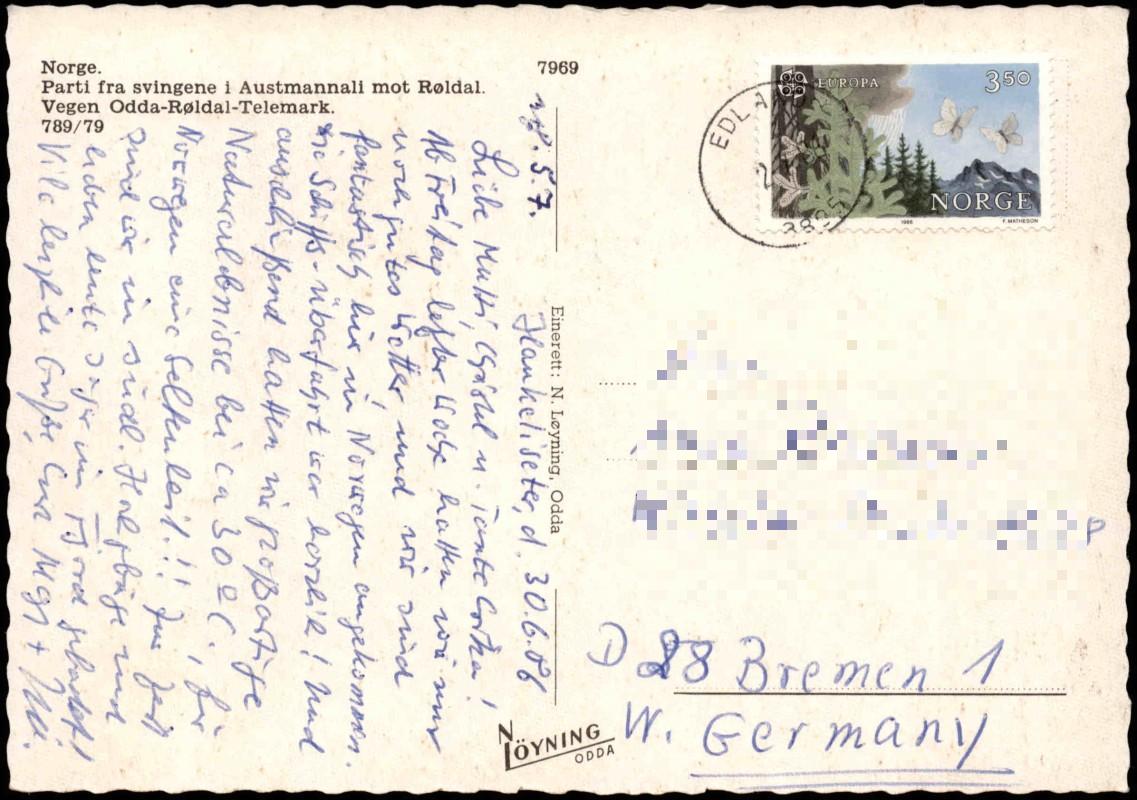 Norge.
Parti fra svingene i Austmannali mot Røldal.
Vegen Odda-Røldal-Telemark.
789/79
7969
EUROPA
350
NORGE
1986
F. MATHESON
EDLA
3895
Einerett: N. Løyning, Odda
LÖYNING
ODDA
5.7.
Haukeliseter, d. 30.6.86
Liebe Mutti, u. Tante
Ab Freitag letzter Woche hatten wir nur
noch gutes Wetter, und wir sind
fantastisch hier in Norwegen angekommen.
Die Schiffs-überfahrt war herrlich! Und
anschließend hatten wir großartige
Naturerlebnisse bei ca 30°C, für
Norwegen eine Seltenheit!! Zur Zeit
sind wir im südl. Hochgebirge und
haben heute sogar im Fjord gebadet!
Viele herzliche Grüße, Eure +
D 28 Bremen 1
W. Germany